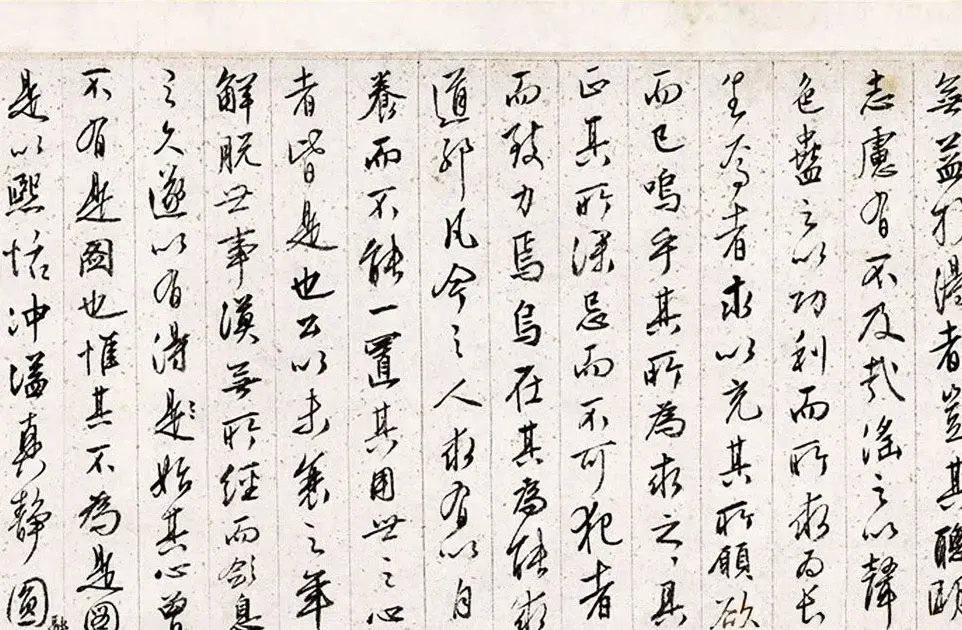 無益於得者豈其聰明
志慮有不及哉淫之以聲
色蠱之以功利而所求為長
生者求以充其所願欲
而已嗚乎其所為求之之具
正其所深忌而不可犯者
而致力焉烏在其為能求
道耶凡今之人求有以自
養而不能一置其用世之心
者皆是也公以未衰之年
解脫世事漠無所經而斂息
之久遂以有得是殆其心曾
不有是圖也惟其不為是圖
是以熙恬沖溢真靜圓